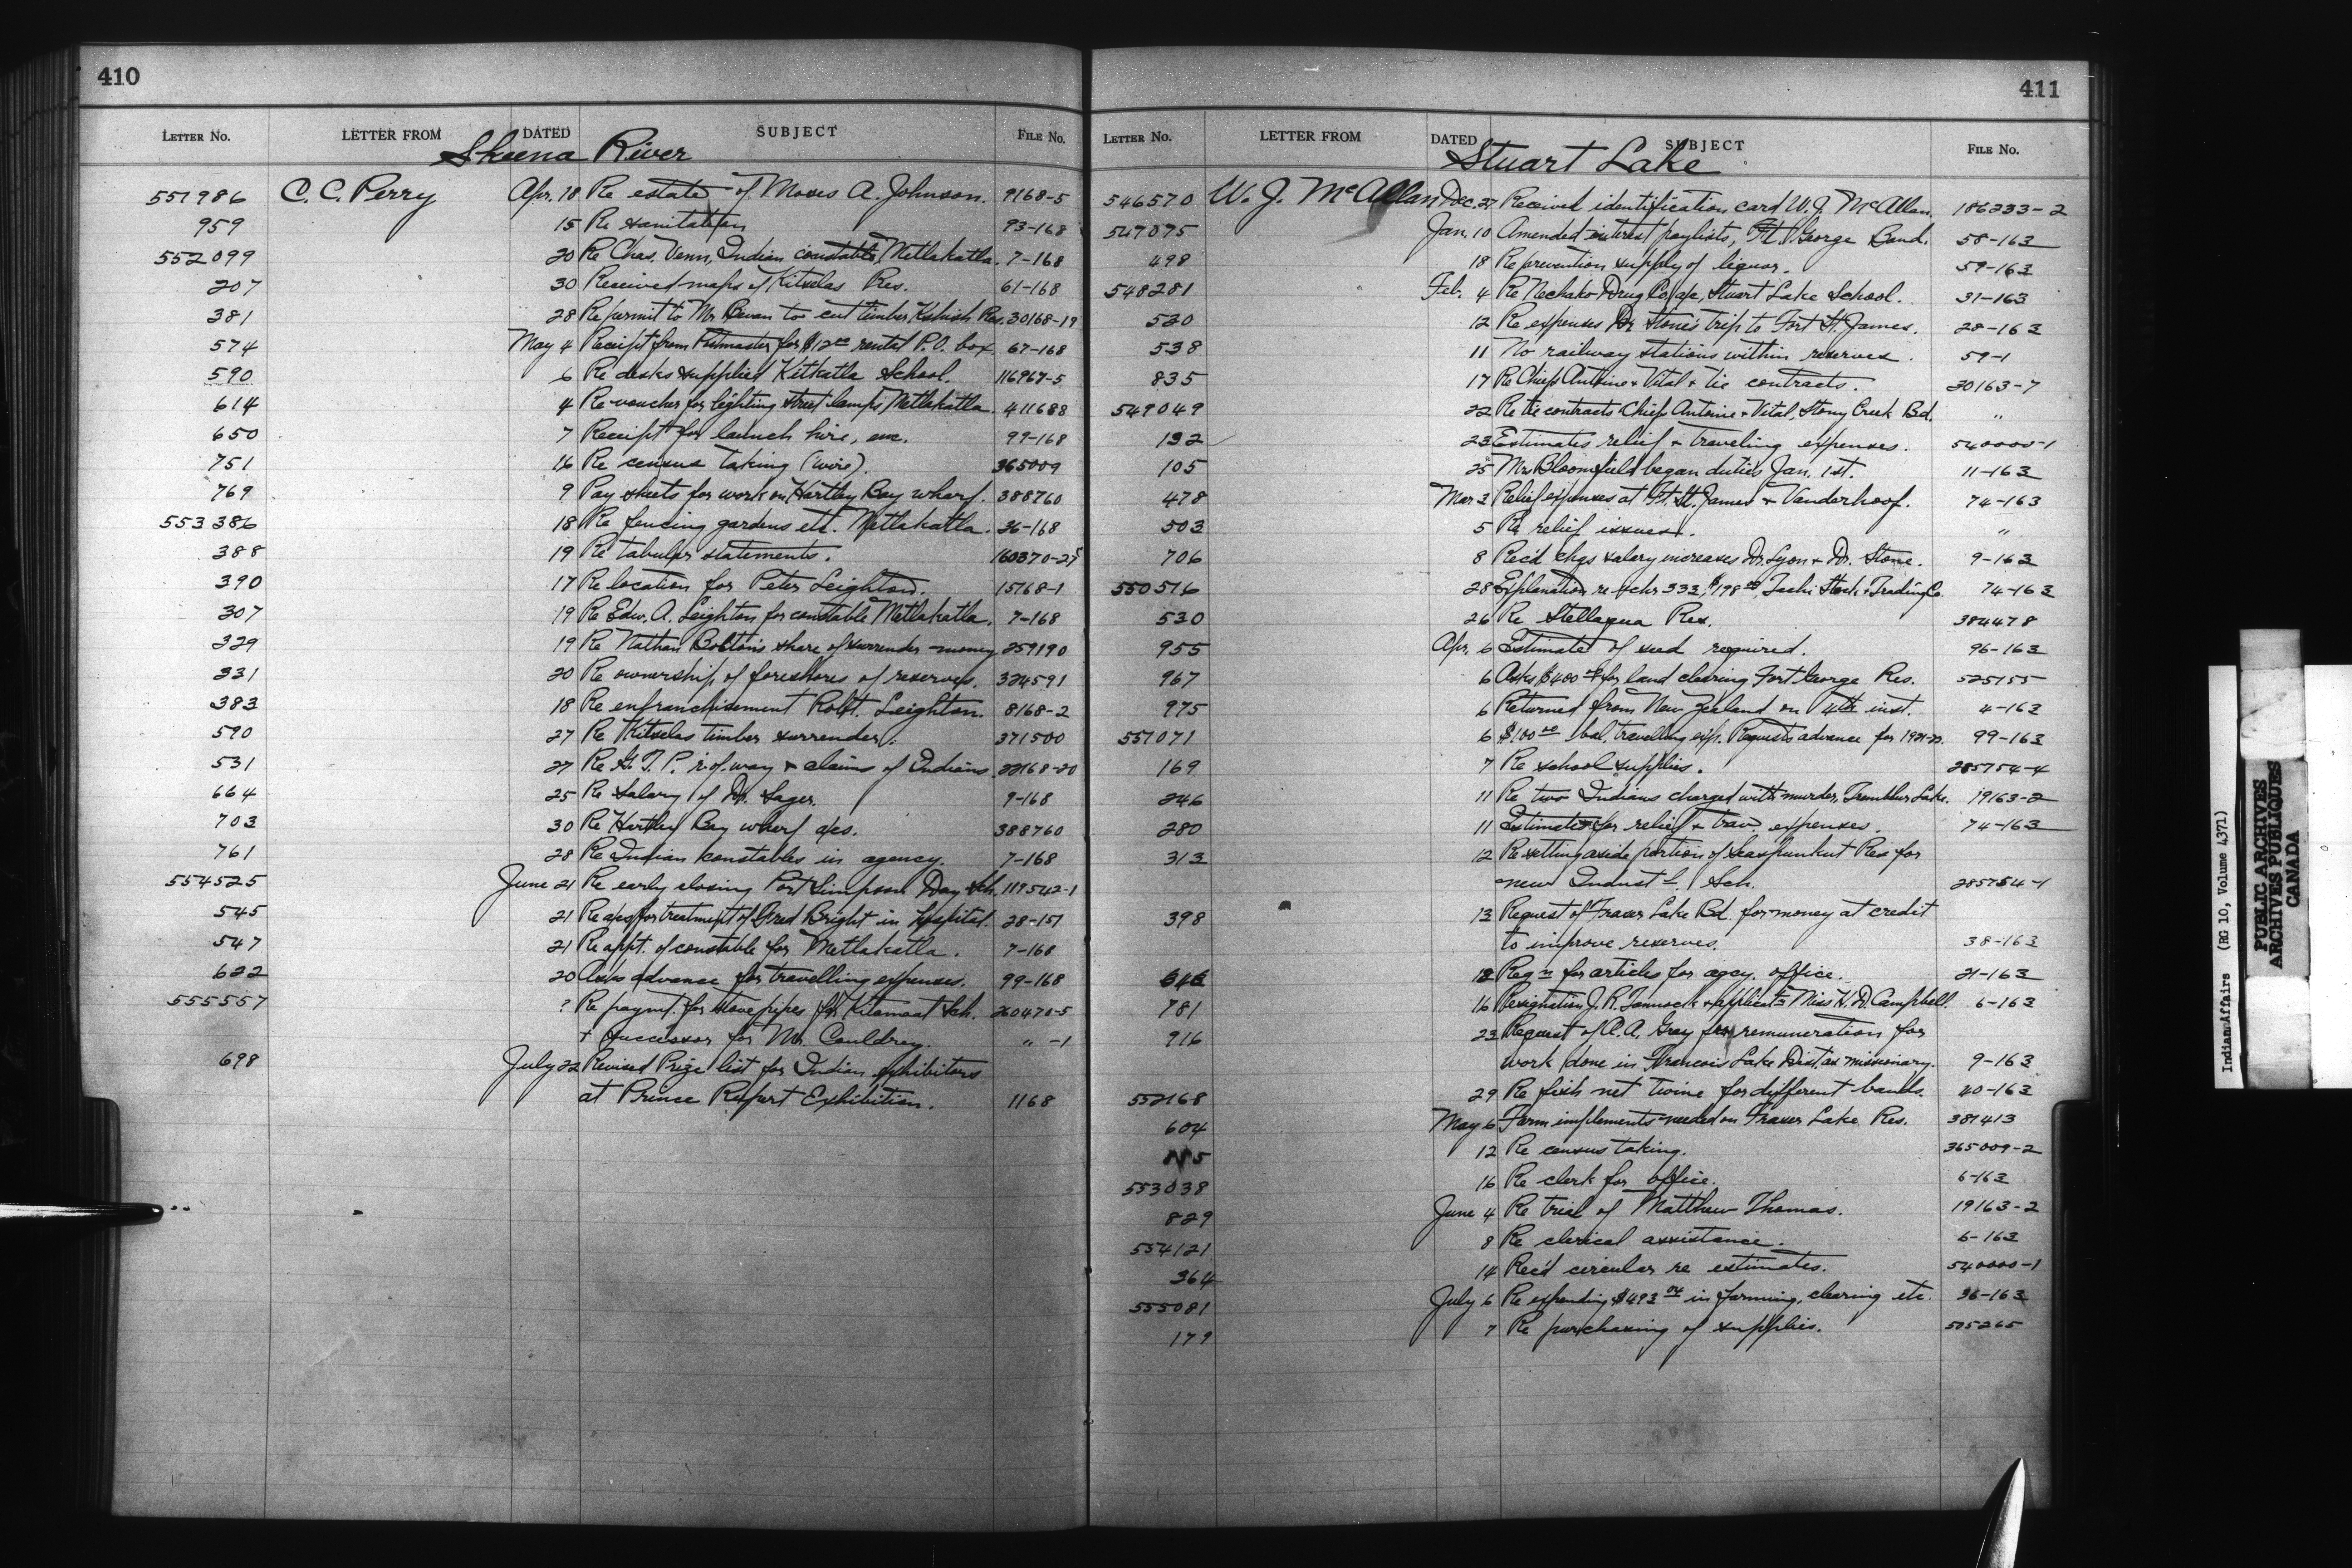 410
LETTER NO. LETTER FROM DATED SUBJECT FILE NO.
Skeena River
551986 C. C. Perry Apr. 18 Re estate of Moses A. Johnson. 9168-5
959 15 Re sanitation 93-168
552099 20 Re Chas. Venn, Indian constable, Metlakatla. 7-168
207 30 Received maps of Kitselas Res. 61-168
381 28 Re permit to Mr. Bevan to cut timber, Kshish Res. 30168-19
574 May 4 Receipt from Postmaster for $12.00 rental P.O. box. 67-168
590 6 Re desks supplied Kitkatla School. 116967-5
614 4 Re voucher for lighting street lamps Metlakatla 411688
650 7 Receipt for launch hire, etc. 99-168
751 16 Re census taking (wire). 365009
769 9 Pay sheets for work on Hartley Bay wharf. 388760
553386 18 Re fencing gardens etc. Metlakatla. 36-168
388 19 Re tabular statements. 160370-25
390 17 Re location for Peter Leighton. 15168-1
307 19 Re Edw. A. Leighton for constable Metlakatla. 7-168
329 19 Re Nathan Bolton's share of surrender money 259190
331 20 Re ownership of foreshores of reserves. 324591
383 18 Re enfranchisement Robt. Leighton. 8168-2
590 27 Re Kitselas timber surrender. 371500
531 27 Re G. T. P. r. of way + claims of Indians 22168-20
664 25 Re salary of Dr. Sager. 9-168
703 30 Re Hartley Bay wharf a/cs. 388760
761 28 Re Indian constables in agency. 7-168
554525 June 21 Re early closing Port Simpson Day Sch. 119542-1
545 21 Re a/cs for treatment of Bright in Hospital. 28-151
547 21 Re appt. of constable for Metlakatla. 7-168
622 20 Asks advance for travelling expenses. 99-168
555557 ? Re paymt. for stove pipes for Kitamaat Sch. 260470-5
+ successor for Mr. Couldrey. " -1
698 July 22 Revised Prize list for Indian exhibitors
at Prince Rupert Exhibition. 1168
411
LETTER NO. LETTER FROM DATED SUBJECT FILE NO.
Stuart Lake
546570 W. J. McAllan Dec. 27 Received identification card W. J. McAllan. 186233-2
547075 Jan. 10 Amended interest paylists, Ft. George Band. 58-163
498 18 Re prevention supply of liquor. 59-163
548281 Feb. 4 Re Nechako Drug Co. a/c, Stuart Lake School. 31-163
530 12 Re expenses Dr. Stone's trip to Fort St. James. 28-163
538 11 No railway stations within reserves. 59-1
835 17 Re Chiefs Antoine + Vital + tie contracts. 30163-7
549049 22 Re tie contracts Chiefs Antoine + Vital, Stony Creek Bd. "
132 23 Estimates relief + traveling expenses. 540000-1
105 25 Mrs Bloomfield began duties Jan. 1st. 11-163
478 Mar. 3 Relief expenses at Ft. St. James + Vanderhoof. 74-163
503 5 Re relief issues. "
706 8 Rec'd chqs salary increases Dr. Lyon + Dr. Stone. 9-163
550516 28 Explanation re vchr 333, $198.00, Tachi Stock + Trading Co. 74-163
530 26 Re Stellaqua Res. 384478
955 Apr. 6 Estimate of seed required. 96-163
967 6 Asks $400.00 for land clearing Fort George Res. 525155
975 6 Returned from New Zealand on 4th inst. 4-163
551071 6 $100.00 bal. travelling exp. Requests advance for 1921-22. 99-163
169 7 Re school supplies. 285754-4
246 11 Re two Indians charged with murder, Trembleur Lake. 19163-2
280 11 Estimates for relief + trav. expenses. 74-163
313 12 Re setting aside portion of Seaspunkut Res for
new Indust'l. Sch. 285754-1
398 13 Request of Fraser Lake Bd. for money at credit
to improve reserves. 38-163
616 12 Reqn for articles for agcy. office. 21-163
781 16 Resignation J. R. + Miss H. D. Campbell. 6-163
916 23 Request of A. Gray for remuneration for
work done in Francois Lake Dist. as missionary. 9-163
552168 29 Re fish net twine for different bands. 40-163
604 May 6 Farm implements needed on Fraser Lake Res. 381413
12 Re census taking. 365009-2
553038 16 Re clerk for office. 6-163
829 June 4 Re trial of Matthew Thomas. 19163-2
554121 8 Re clerical assistance. 6-163
364 14 Rec'd circular re estimates. 540000-1
555081 July 6 Re expending $493.04 in farming, clearing etc. 36-163
179 7 Re purchasing of supplies. 505265
Indian Affairs (RG 10, Volume 4371)
PUBLIC ARCHIVES
ARCHIVES PUBLIQUES
CANADA